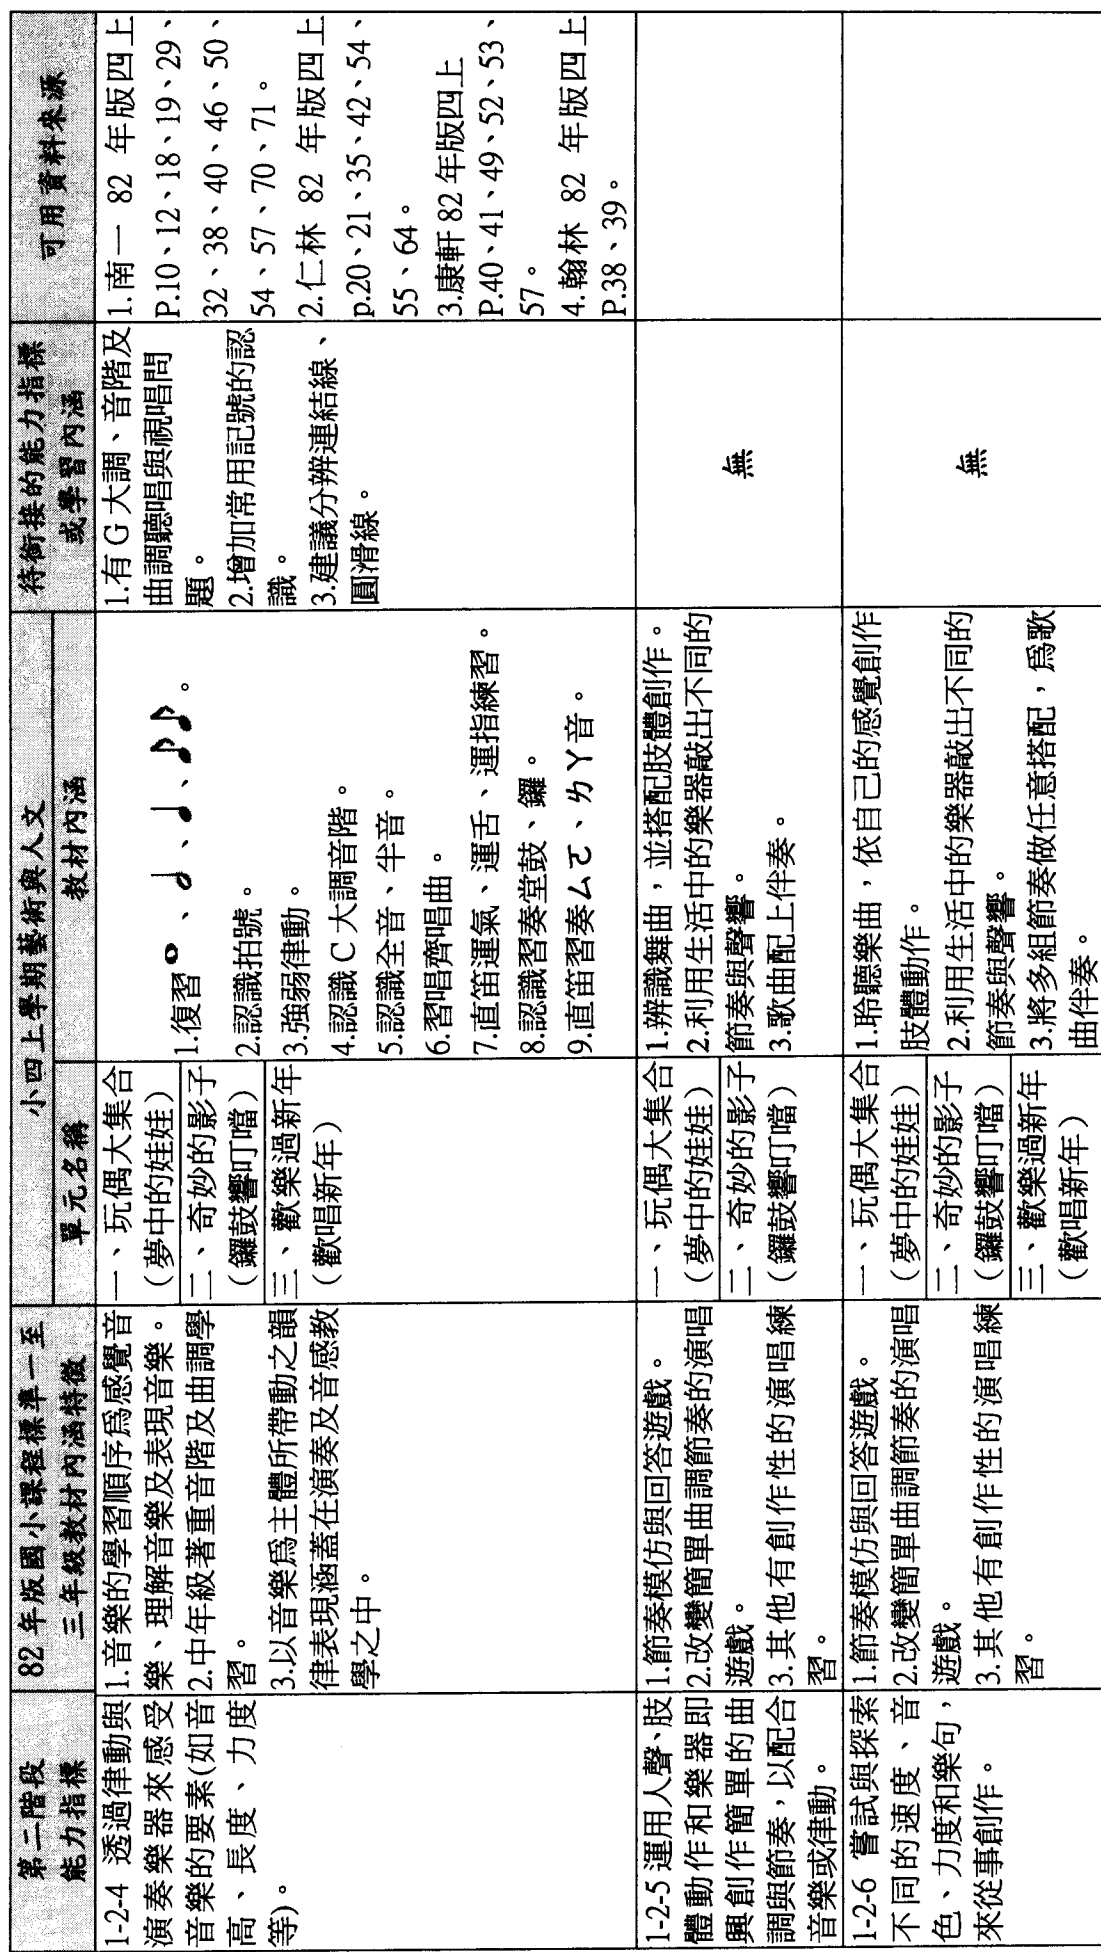 第二階段
能力指標
82 年版國小課程標準一至
三年級教材內涵特徵
小四上學期藝術與人文
單元名稱
教材內涵
待銜接的能力指標
或學習內涵
可用資料來源
1-2-4 透過律動與
演奏樂器來感受
音樂的要素(如音
高、長度、力度
等)。
1.音樂的學習順序爲感覺音
樂、理解音樂及表現音樂。
2.中年級著重音階及曲調學
習。
3.以音樂爲主體所帶動之韻
律表現涵蓋在演奏及音感教
學之中。
一、玩偶大集合
(夢中的娃娃)
二、奇妙的影子
(鑼鼓響叮噹)
三、歡樂過新年
(歡唱新年)
1.復習𝅝、𝅗𝅥、♩、♪♪。
2.認識拍號。
3.強弱律動。
4.認識 C 大調音階。
5.認識全音、半音。
6.習唱齊唱曲。
7.直笛運氣、運舌、運指練習。
8.認識習奏堂鼓、鑼。
9.直笛習奏ㄙㄛ、ㄌㄚ音。
1.有 G 大調、音階及
曲調聽唱與視唱問
題。
2.增加常用記號的認
識。
3.建議分辨連結線、
圓滑線。
1.南一 82 年版四上
P.10、12、18、19、29、
32、38、40、46、50、
54、57、70、71。
2.仁林 82 年版四上
p.20、21、35、42、54、
55、64。
3.康軒 82 年版四上
P.40、41、49、52、53、
57。
4.翰林 82 年版四上
P.38、39。
1-2-5 運用人聲、肢
體動作和樂器即
興創作簡單的曲
調與節奏，以配合
音樂或律動。
1.節奏模仿與回答遊戲。
2.改變簡單曲調節奏的演唱
遊戲。
3.其他有創作性的演唱練
習。
一、玩偶大集合
(夢中的娃娃)
二、奇妙的影子
(鑼鼓響叮噹)
1.辨識舞曲，並搭配肢體創作。
2.利用生活中的樂器敲出不同的
節奏與聲響。
3.歌曲配上伴奏。
無
1-2-6 嘗試與探索
不同的速度、音
色、力度和樂句，
來從事創作。
1.節奏模仿與回答遊戲。
2.改變簡單曲調節奏的演唱
遊戲。
3.其他有創作性的演唱練
習。
一、玩偶大集合
(夢中的娃娃)
二、奇妙的影子
(鑼鼓響叮噹)
三、歡樂過新年
(歡唱新年)
1.聆聽樂曲，依自己的感覺創作
肢體動作。
2.利用生活中的樂器敲出不同的
節奏與聲響。
3.將多組節奏做任意搭配，爲歌
曲伴奏。
無